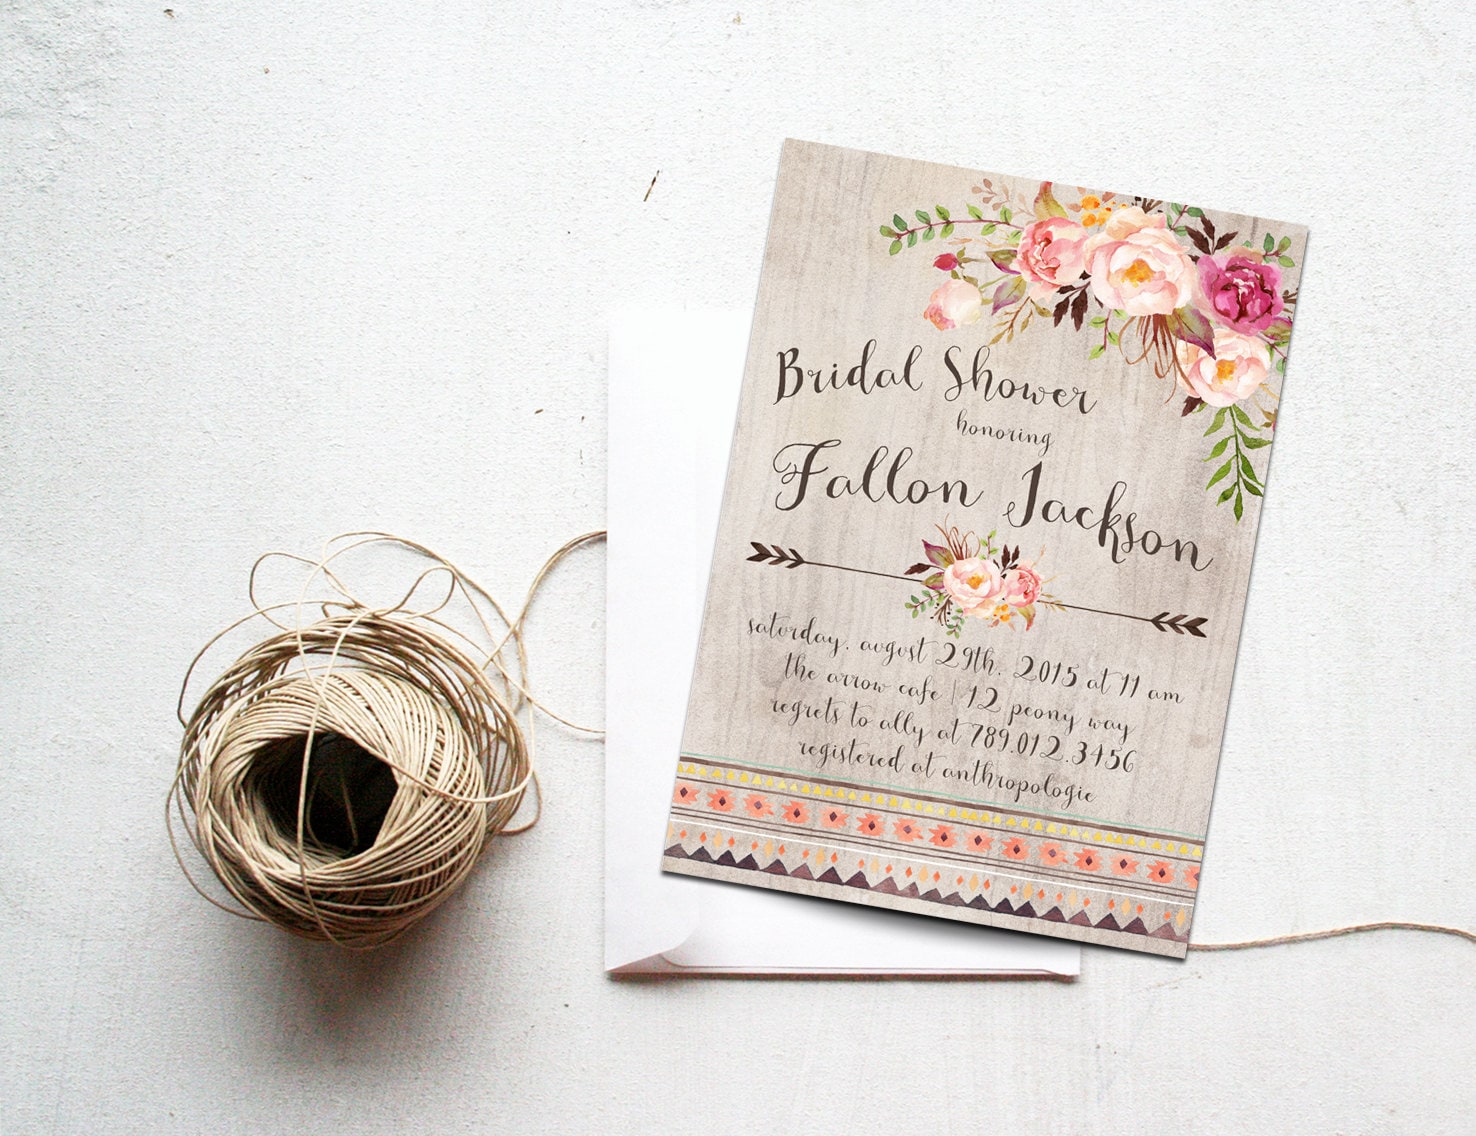 Bridal Shower
honoring
Fallon Jackson
saturday, august 29th, 2015 at 11 am
the arrow cafe | 12 peony way
regrets to ally at 789.012.3456
registered at anthropologie